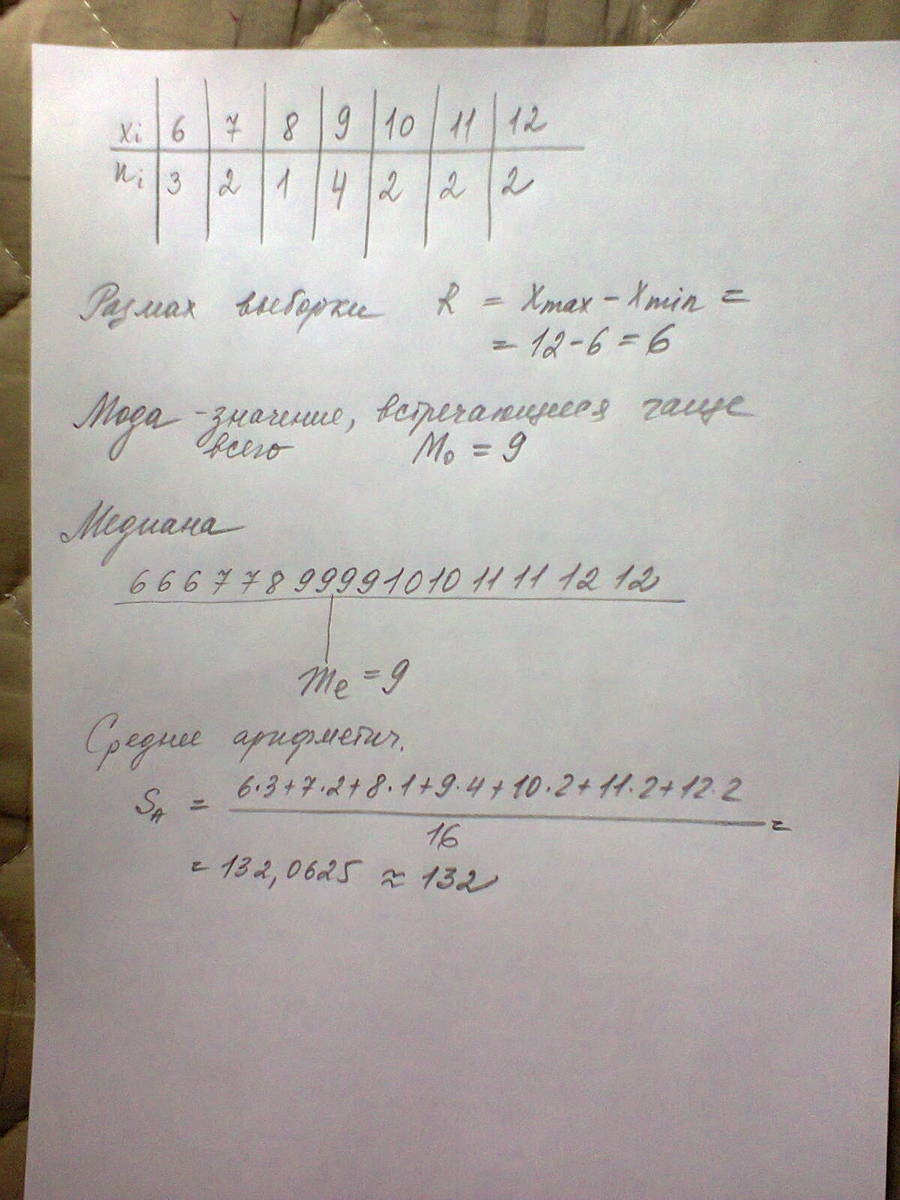 xi 6 7 8 9 10 11 12
ni 3 2 1 4 2 2 2
Размах выборки R = Xmax - Xmin =
= 12 - 6 = 6
Мода - значение, встречающиеся чаще
всего Mo = 9
Медиана
6 6 6 7 7 8 9 9 9 9 10 10 11 11 12 12
me = 9
Среднее арифметич.
SA = (6·3+7·2+8·1+9·4+10·2+11·2+12·2) / 16 =
= 132,0625 ≈ 132